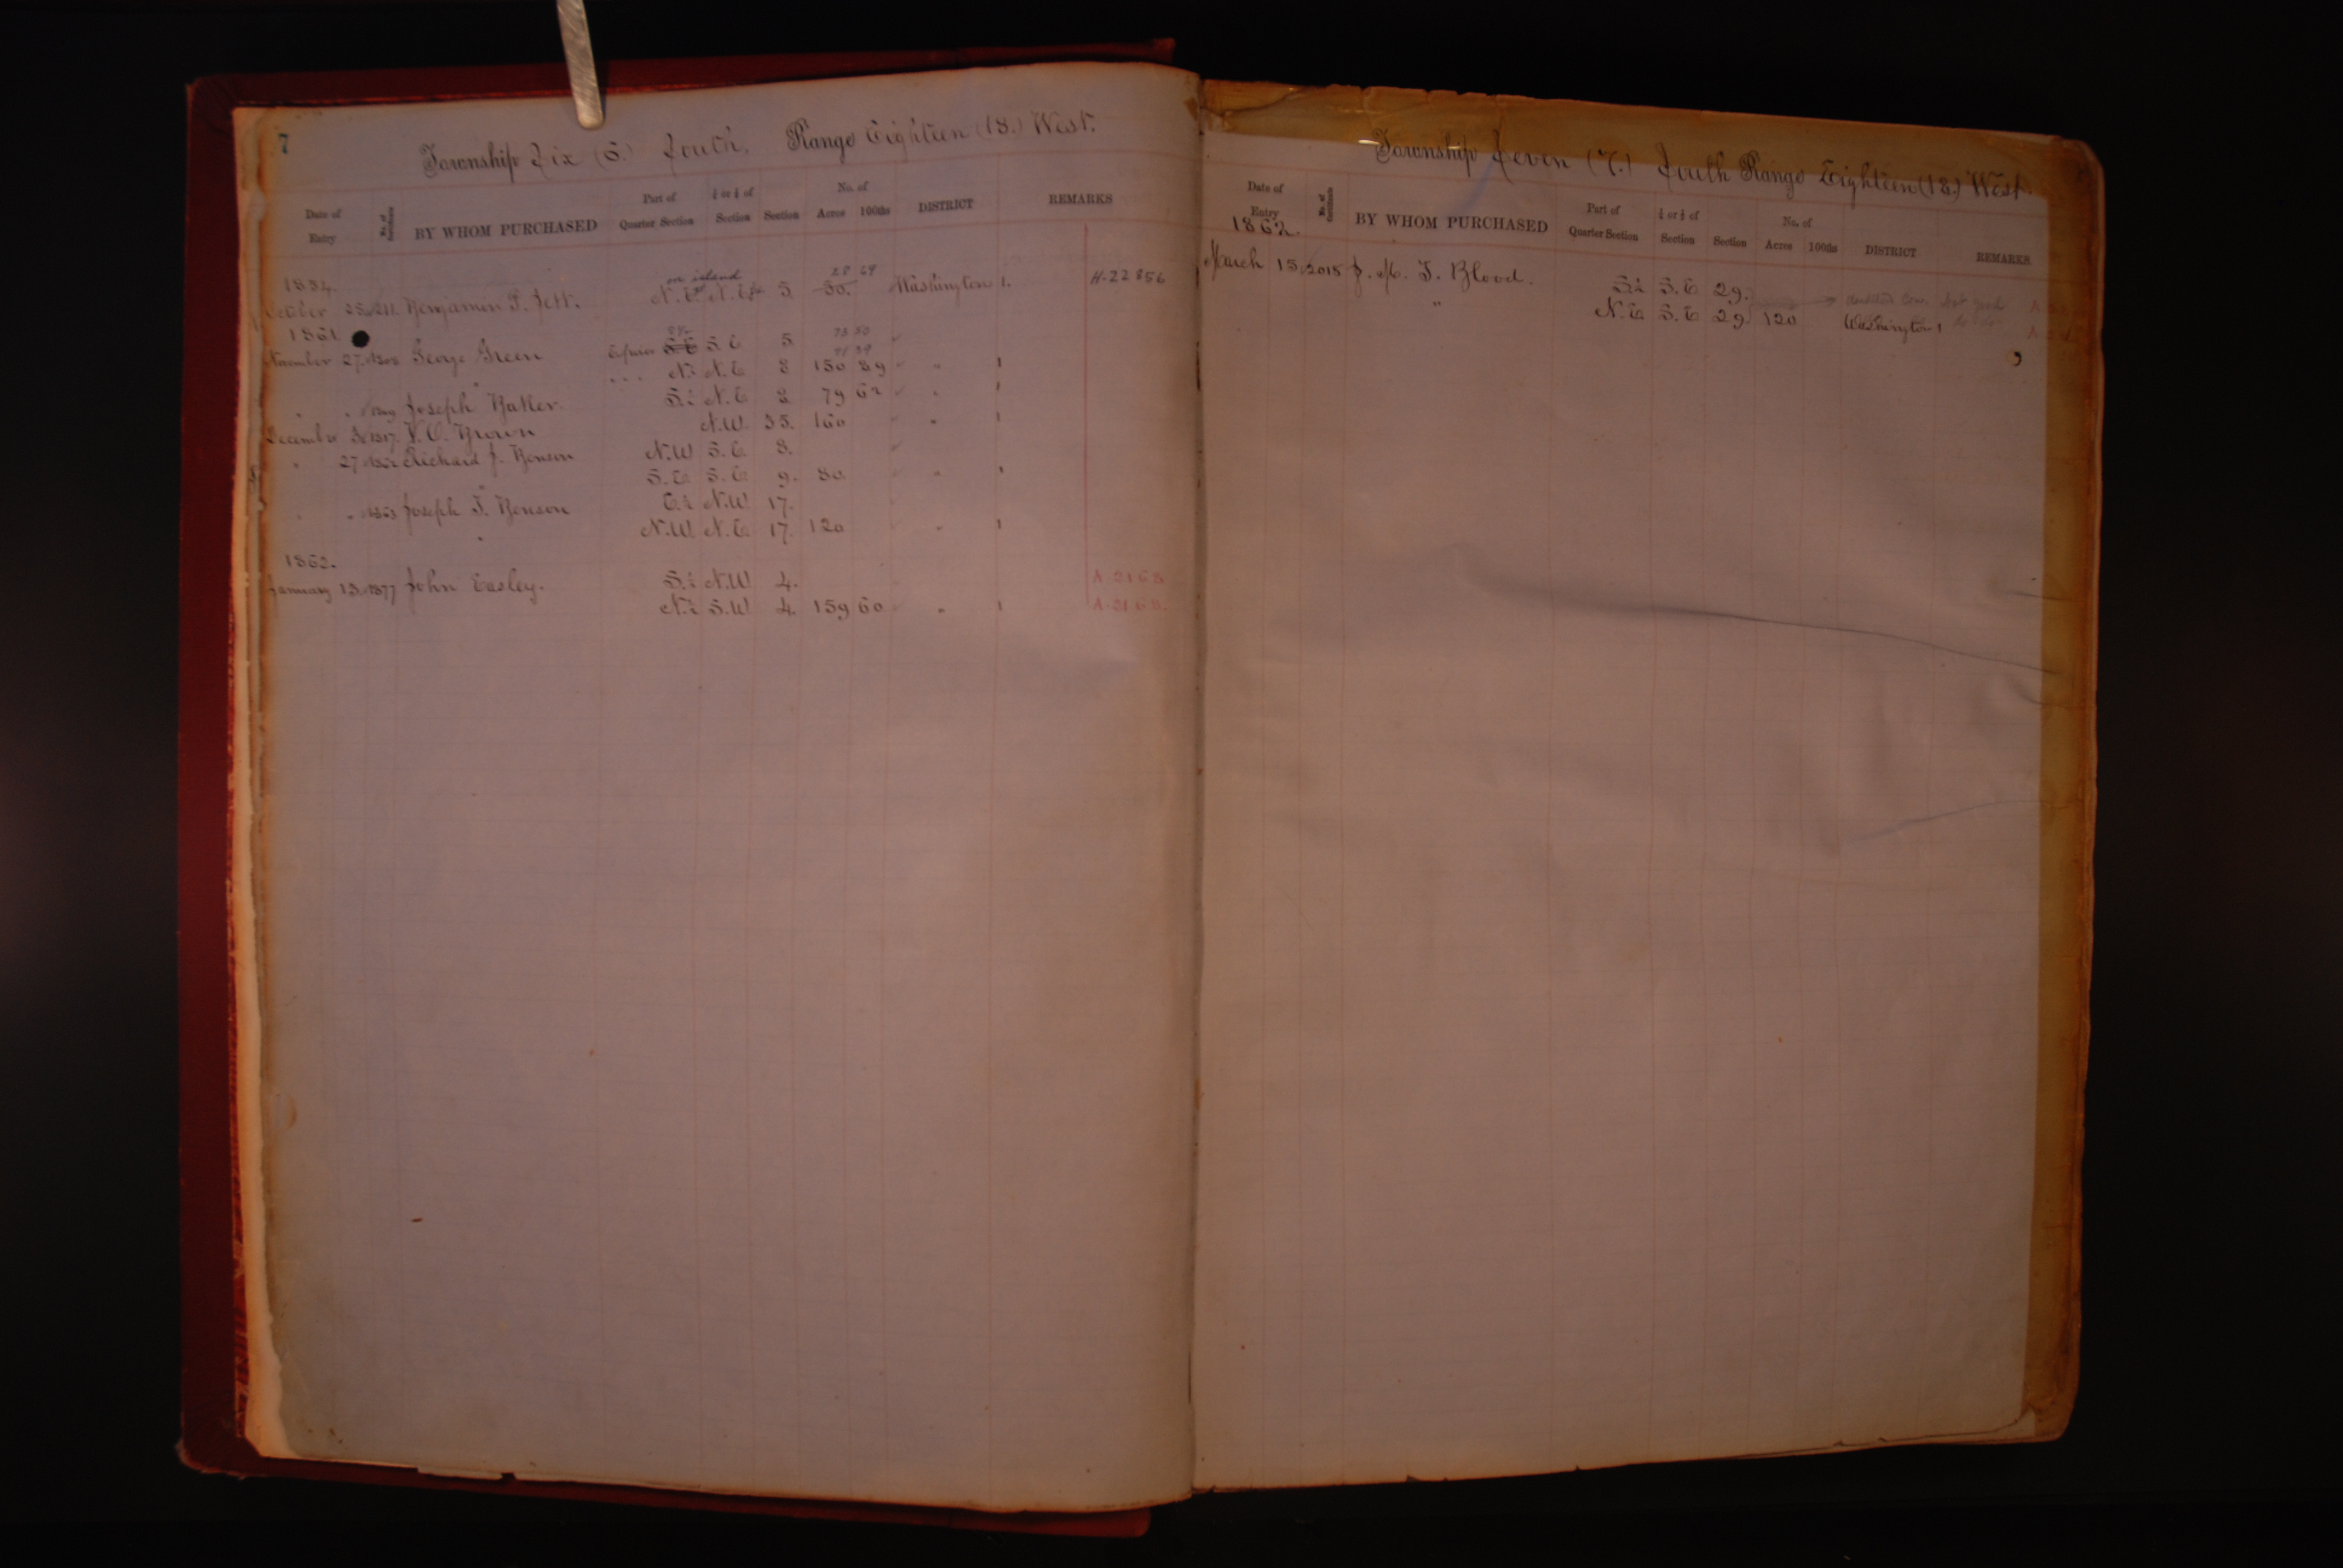 7
Township Six (6.) South, Range Eighteen (18.) West.
Date of Entry No. of Certificate BY WHOM PURCHASED Part of Quarter Section ½ or ¼ of Section Section No. of Acres 100ths DISTRICT REMARKS
on island 28 69
1854.
October 25. 211. Benjamin F. Jett. N.E. N.E. 5 50. Washington 1. H-22856
1861.
November 27. George Green S.E. S.E. 5 73 50
N.½ N.E. 8 150 89 " 1
" " Joseph Baker. S.½ N.E. 8 79 62 " 1
December 3. 1817. V. O. Brown N.W. 35. 160 " 1
" 27. 1862 Richard J. Benson N.W. S.E. 8.
" S.E. S.E. 9. 80. " 1
" " 1863 Joseph T. Benson E.½ N.W. 17.
" N.W. N.E. 17. 120 " 1
1862.
January 13. 1877 John Easley. S.½ N.W. 4. A-2168
N.½ S.W. 4. 159 60 " 1 A-2168.
Township Seven (7.) South Range Eighteen (18.) West.
Date of Entry No. of Certificate BY WHOM PURCHASED Part of Quarter Section ½ or ¼ of Section Section No. of Acres 100ths DISTRICT REMARKS
1862.
March 15. 2015 J. M. T. Blood. S.½ S.E. 29.
" N.E. S.E. 29 120 Washington 1